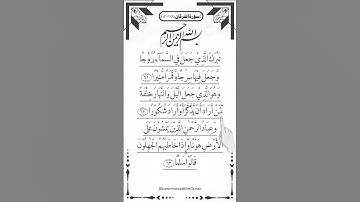 بسم الله الرحمن الرحيم
تَبٰرَكَ الَّذِي جَعَلَ فِي السَّمَآءِ بُرُوجًا
وَّجَعَلَ فِيهَا سِرٰجًا وَّقَمَرًا مُّنِيرًا
وَهُوَ الَّذِي جَعَلَ الَّيْلَ وَالنَّهَارَ خِلْفَةً
لِّمَنْ أَرَادَ أَنْ يَّذَّكَّرَ أَوْ أَرَادَ شُكُورًا
وَعِبَادُ الرَّحْمٰنِ الَّذِينَ يَمْشُونَ عَلَى
الْأَرْضِ هَوْنًا وَّإِذَا خَاطَبَهُمُ الْجٰهِلُونَ
قَالُوا سَلٰمًا